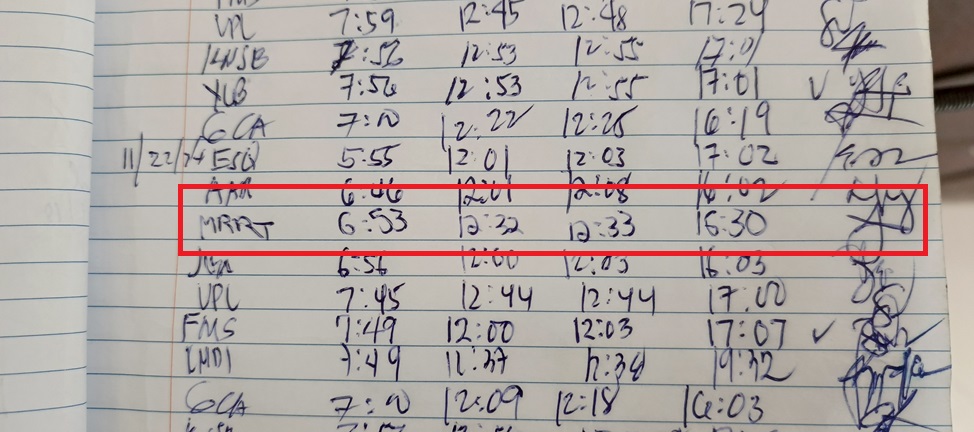 VPL 7:59 12:45 12:48 17:24
KNSB 7:56 12:53 12:55 17:01
YLB 7:56 12:53 12:55 17:01 ✓
GCA 7:10 12:22 12:25 16:19
11/22/24 ESQ 5:55 12:01 12:03 17:02
6:46 12:01 12:08 16:02
MRRT 6:53 12:32 12:33 15:30
6:56 12:00 12:03 16:03
VPL 7:45 12:44 12:44 17:00
FMS 7:49 12:00 12:03 17:07 ✓
LMDI 7:49 11:37 19:32
GCA 12:09 12:18 16:03